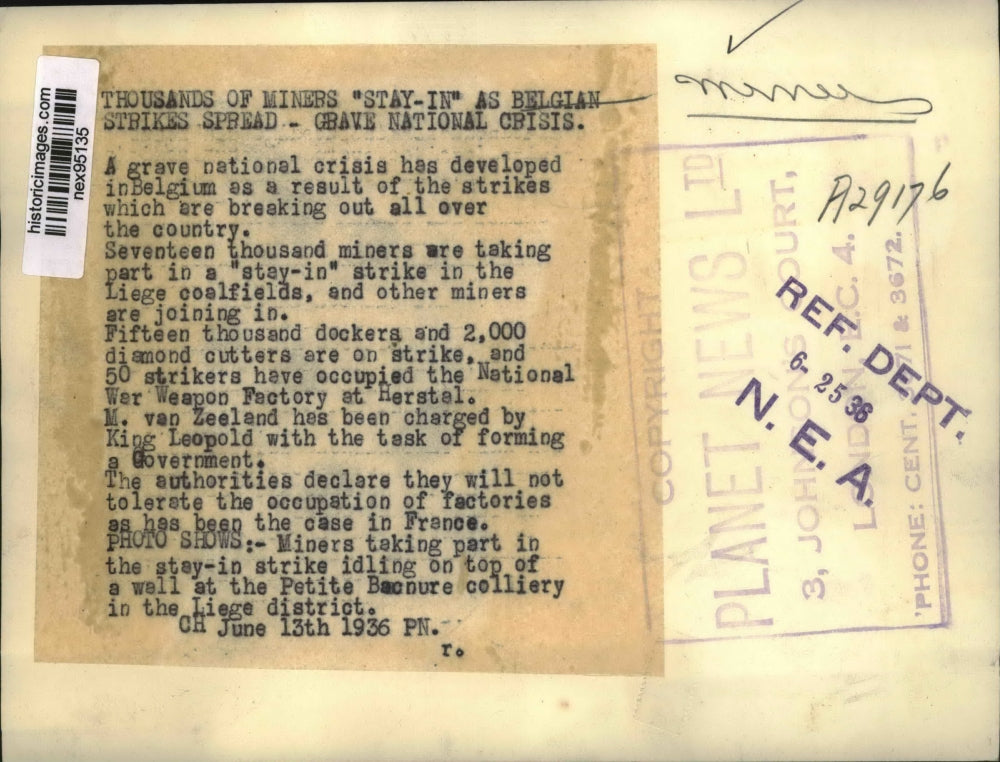 historicimages.com
nex95135
THOUSANDS OF MINERS "STAY-IN" AS BELGIAN
STRIKES SPREAD - GRAVE NATIONAL CRISIS.
A grave national crisis has developed
inBelgium as a result of the strikes
which are breaking out all over
the country.
Seventeen thousand miners are taking
part in a "stay-in" strike in the
Liege coalfields, and other miners
are joining in.
Fifteen thousand dockers and 2,000
diamond cutters are on strike, and
50 strikers have occupied the National
War Weapon Factory at Herstal.
M. van Zeeland has been charged by
King Leopold with the task of forming
a Government.
The authorities declare they will not
tolerate the occupation of factories
as has been the case in France.
PHOTO SHOWS:- Miners taking part in
the stay-in strike idling on top of
a wall at the Petite Bacnure colliery
in the Liege district.
CH June 13th 1936 PN.
r.
A29176
COPYRIGHT
PLANET NEWS LTD
3, JOHNSONS COURT,
LONDON E.C. 4.
'PHONE: CENT. 71 & 3672.
REF. DEPT.
6-25 36
N. E. A.